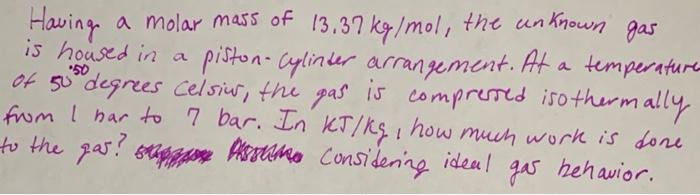 Having a molar mass of 13.37 kg/mol, the unknown gas
is housed in a piston-cylinder arrangement. At a temperature
of 50 degrees Celsius, the gas is compressed isothermally
from 1 bar to 7 bar. In KJ/kg, how much work is done
to the gas? Considering ideal gas behavior.